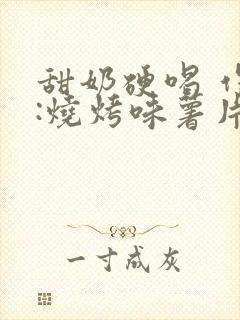 甜奶硬唱
:燒烤味薯片
一寸成灰